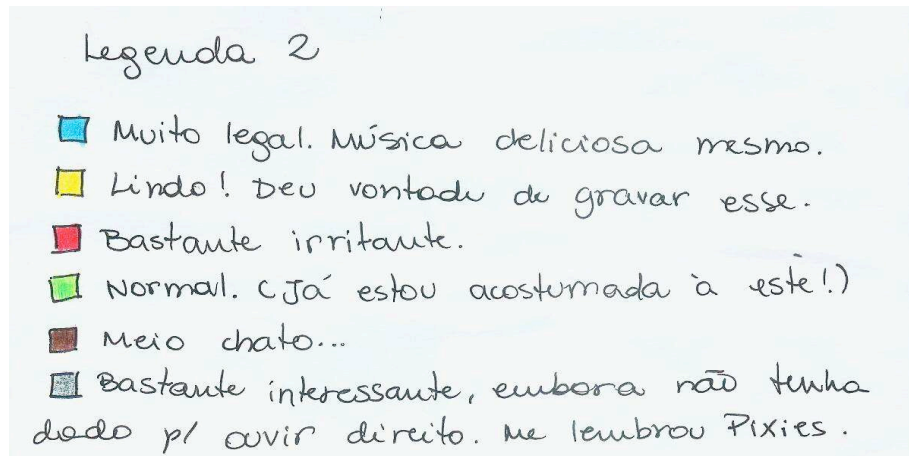 Legenda 2
Muito legal. Música deliciosa mesmo.
Lindo! Deu vontade de gravar esse.
Bastante irritante.
Normal. (Já estou acostumada à este!)
Meio chato...
Bastante interessante, embora não tenha
dado p/ ouvir direito. Me lembrou Pixies.